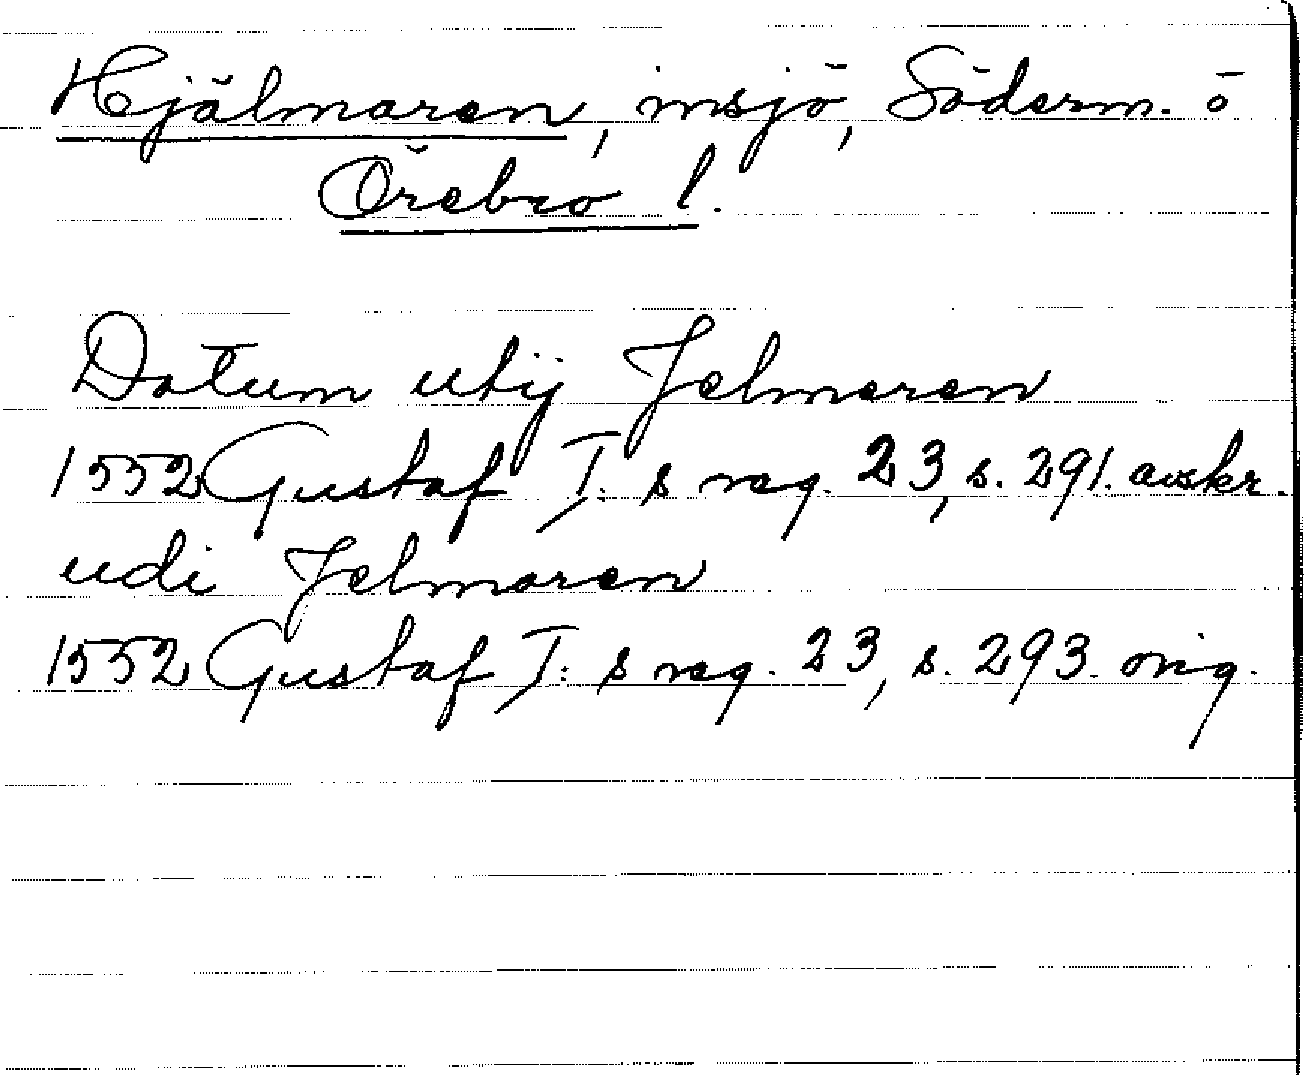 Hjälmaren, insjö, Söderm. o
Örebro l.
Datum utij Jelmeren
1552 Gustaf I:s reg. 23, s. 291. avskr.
udi Jelmaren
1552 Gustaf I:s reg. 23, s. 293. orig.